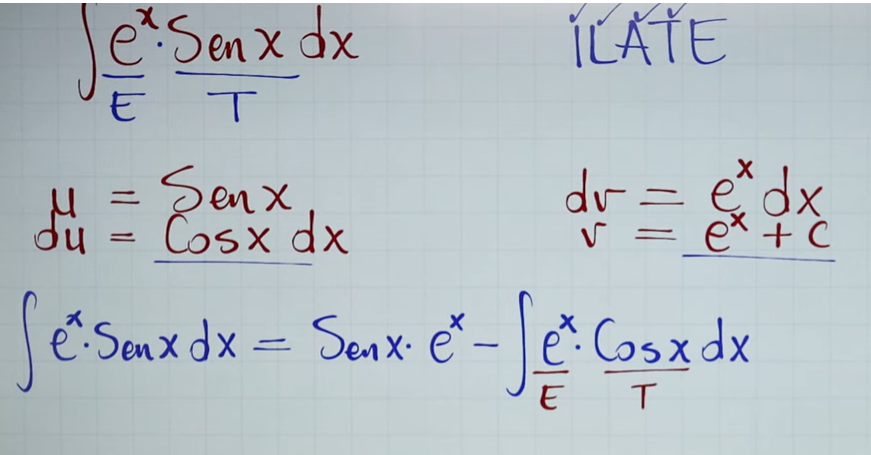 ∫ eˣ · Sen x dx ILATE
E T
u = Sen x dv = eˣ dx
du = Cos x dx v = eˣ + c
∫ eˣ · Sen x dx = Sen x · eˣ - ∫ eˣ · Cos x dx
E T